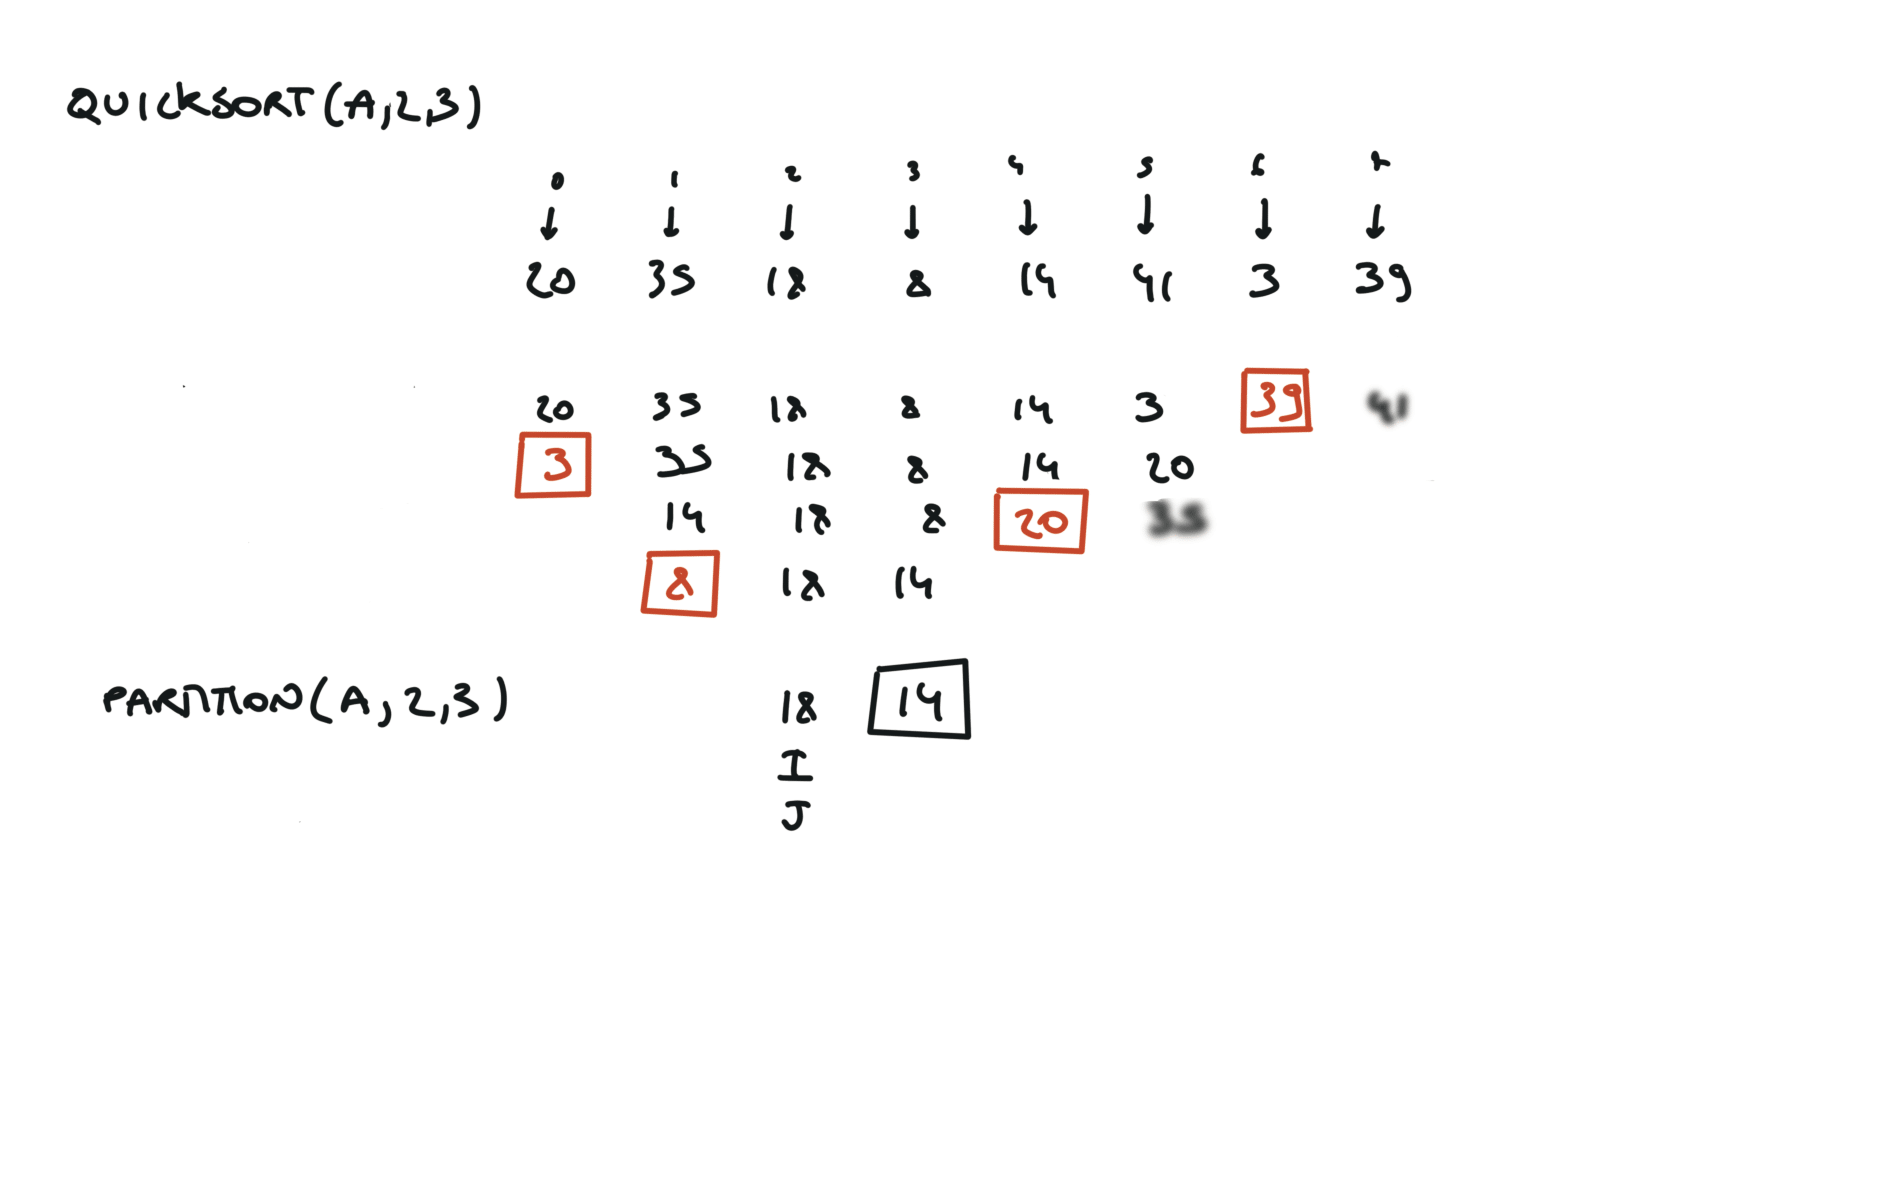 QUICKSORT(A,2,3)
0 1 2 3 4 5 6 7
20 35 18 8 14 41 3 39
20 35 18 8 14 3 39 41
3 35 18 8 14 20
14 18 8 20 35
8 18 14
PARTITION(A,2,3) 18 14
I
J